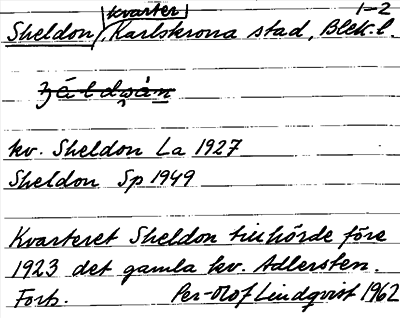 kvarter 1-2
Sheldon, Karlskrona stad, Blek.l.
kv. Sheldon La 1927
Sheldon Sp 1949
Kvarteret Sheldon tillhörde före
1923 det gamla kv. Adlersten.
Forts. Per-Olof Lindqvist 1962